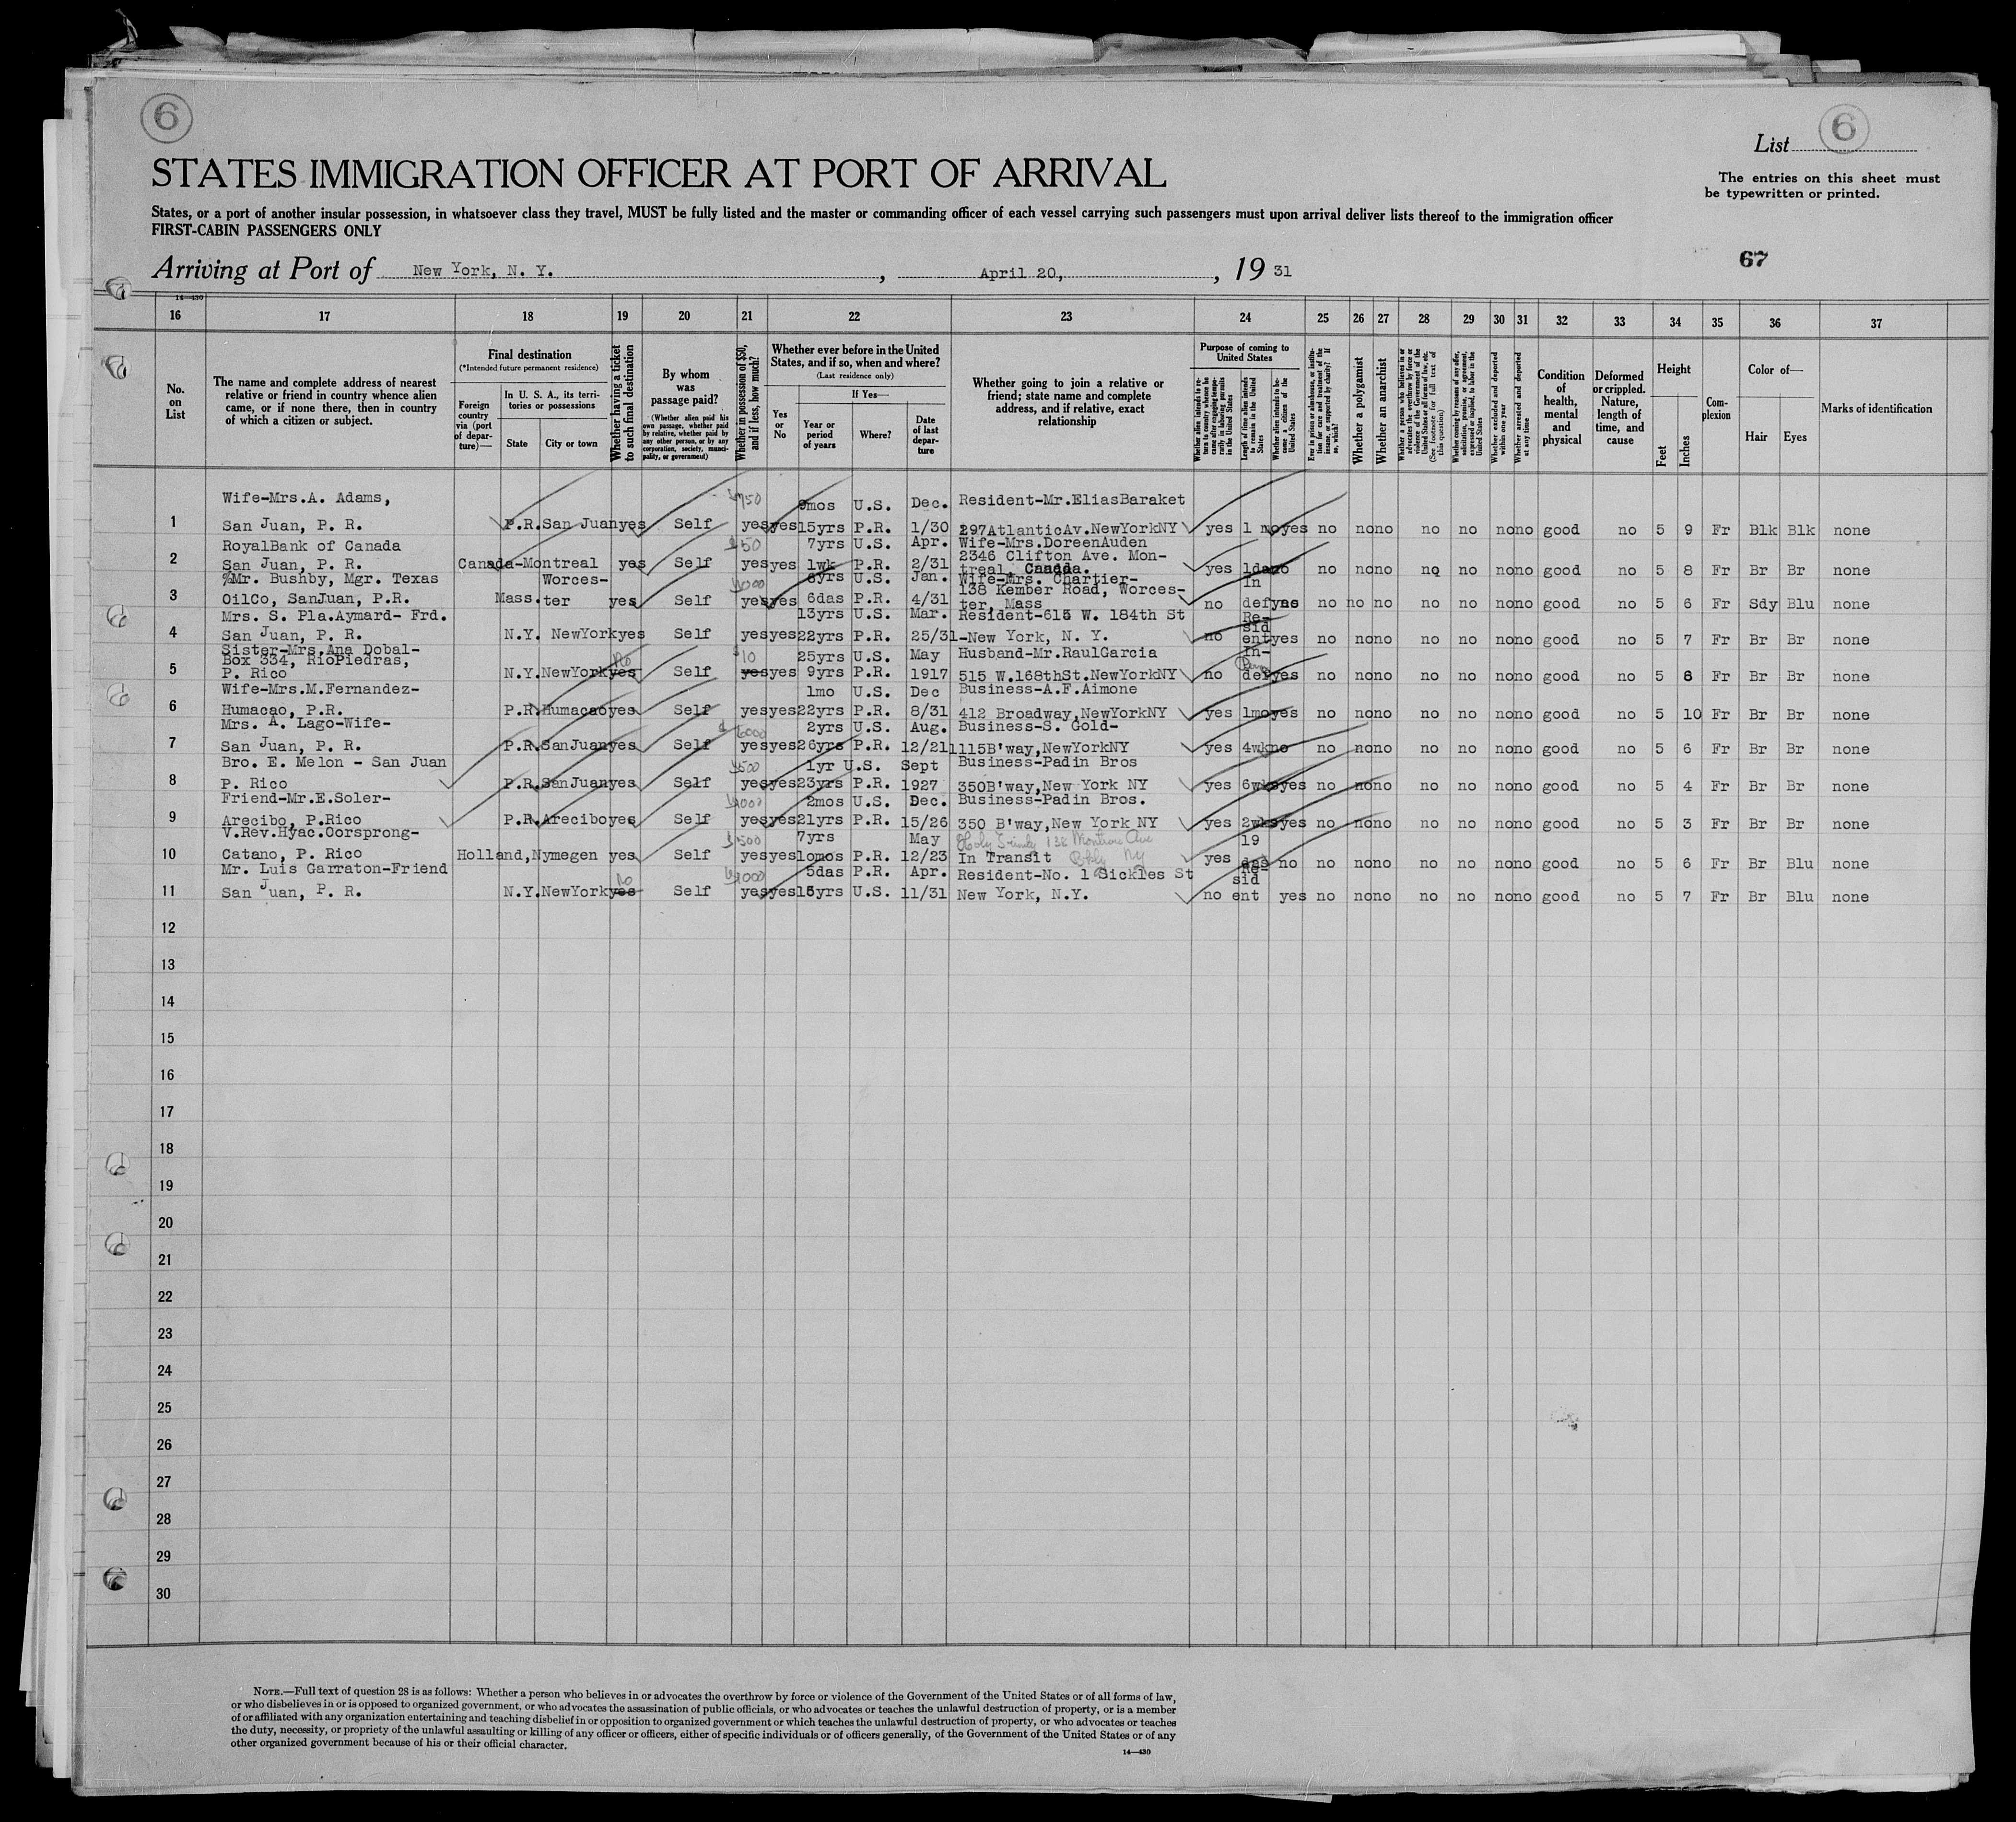 6
6
List
STATES IMMIGRATION OFFICER AT PORT OF ARRIVAL
The entries on this sheet must
be typewritten or printed.
States, or a port of another insular possession, in whatsoever class they travel, MUST be fully listed and the master or commanding officer of each vessel carrying such passengers must upon arrival deliver lists thereof to the immigration officer
FIRST-CABIN PASSENGERS ONLY
67
Arriving at Port of New York, N. Y. , April 20, , 19 31
14—430
16 17 18 19 20 21 22 23 24 25 26 27 28 29 30 31 32 33 34 35 36 37
No. on List
The name and complete address of nearest relative or friend in country whence alien came, or if none there, then in country of which a citizen or subject.
Final destination
(*Intended future permanent residence)
Foreign country via (port of departure)—
In U. S. A., its territories or possessions
State
City or town
Whether having a ticket to such final destination
By whom was passage paid?
(Whether alien paid his own passage, whether paid by relative, whether paid by any other person, or by any corporation, society, municipality, or government)
Whether in possession of $50, and if less, how much?
Whether ever before in the United States, and if so, when and where?
(Last residence only)
Yes or No
If Yes—
Year or period of years
Where?
Date of last departure
Whether going to join a relative or friend; state name and complete address, and if relative, exact relationship
Purpose of coming to United States
Whether alien intends to return to country whence he came after engaging temporarily in laboring pursuits in the United States
Length of time alien intends to remain in the United States
Whether alien intends to become a citizen of the United States
Ever in prison or almshouse, or institution for care and treatment of the insane, or supported by charity? If so, which?
Whether a polygamist
Whether an anarchist
Whether a person who believes in or advocates the overthrow by force or violence of the Government of the United States or all forms of law, etc. (See footnote for full text of this question)
Whether coming by reason of any offer, solicitation, promise, or agreement, expressed or implied, to labor in the United States
Whether excluded and deported within one year
Whether arrested and deported at any time
Condition of health, mental and physical
Deformed or crippled. Nature, length of time, and cause
Height
Feet
Inches
Complexion
Color of—
Hair
Eyes
Marks of identification
Wife-Mrs.A. Adams, $750 9mos U.S. Dec. Resident-Mr.EliasBaraket
1 San Juan, P. R. P.R. San Juan yes Self yes yes 15yrs P.R. 1/30 297AtlanticAv.NewYorkNY yes 1 mo yes no no no no no no no good no 5 9 Fr Blk Blk none
RoyalBank of Canada $50 7yrs U.S. Apr. Wife-Mrs.DoreenAuden
2 San Juan, P. R. Canada-Montreal yes Self yes yes 1wk P.R. 2/31 2346 Clifton Ave. Mon-
treal, Canada. yes 1da no no no no no no no no good no 5 8 Fr Br Br none
%Mr. Bushby, Mgr. Texas Worces- 6yrs U.S. Jan. Wife-Mrs. Chartier- In
3 OilCo, SanJuan, P.R. Mass. ter yes Self yes yes 6das P.R. 4/31 138 Kember Road, Worces-
ter, Mass no def yes no no no no no no no good no 5 6 Fr Sdy Blu none
Mrs. S. Pla.Aymard- Frd. 13yrs U.S. Mar. Resident-615 W. 184th St Re-
sid
4 San Juan, P. R. N.Y. NewYork yes Self yes yes 22yrs P.R. 25/31 -New York, N. Y. no ent yes no no no no no no no good no 5 7 Fr Br Br none
Sister-Mrs.Ana Dobal-
Box 334, RioPiedras, No $10 25yrs U.S. May Husband-Mr.RaulGarcia In-
5 P. Rico N.Y. NewYork yes Self yes yes 9yrs P.R. 1917 515 W.168thSt.NewYorkNY no def yes no no no no no no no good no 5 8 Fr Br Br none
Wife-Mrs.M.Fernandez- 1mo U.S. Dec Business-A.F.Aimone
6 Humacao, P.R. P.R. Humacao yes Self yes yes 22yrs P.R. 8/31 412 Broadway,NewYorkNY yes 1mo yes no no no no no no no good no 5 10 Fr Br Br none
Mrs. A. Lago-Wife- $6000 2yrs U.S. Aug. Business-S. Gold-
7 San Juan, P. R. P.R. SanJuan yes Self yes yes 26yrs P.R. 12/21 1115B'way,NewYorkNY yes 4wk no no no no no no no no good no 5 6 Fr Br Br none
Bro. E. Melon - San Juan $500 1yr U.S. Sept Business-Padin Bros
8 P. Rico P.R. SanJuan yes Self yes yes 23yrs P.R. 1927 350B'way,New York NY yes 6wks yes no no no no no no no good no 5 4 Fr Br Br none
Friend-Mr.E.Soler- 2mos U.S. Dec. Business-Padin Bros.
9 Arecibo, P.Rico P.R. Arecibo yes Self yes yes 21yrs P.R. 15/26 350 B'way,New York NY yes 2wks yes no no no no no no no good no 5 3 Fr Br Br none
V.Rev.Hyac.Oorsprong- 7yrs May Holy Trinity 138 Montrose Ave 19
10 Catano, P. Rico Holland,Nymegen yes Self yes yes 10mos P.R. 12/23 In Transit Bkly NY yes das no no no no no no no no good no 5 6 Fr Br Blu none
Mr. Luis Garraton-Friend No 5das P.R. Apr. Resident-No. 1 Sickles St Re-
sid
11 San Juan, P. R. N.Y. NewYork yes Self yes yes 15yrs U.S. 11/31 New York, N.Y. no ent yes no no no no no no no good no 5 7 Fr Br Blu none
12
13
14
15
16
17
18
19
20
21
22
23
24
25
26
27
28
29
30
NOTE.—Full text of question 28 is as follows: Whether a person who believes in or advocates the overthrow by force or violence of the Government of the United States or of all forms of law,
or who disbelieves in or is opposed to organized government, or who advocates the assassination of public officials, or who advocates or teaches the unlawful destruction of property, or is a member
of or affiliated with any organization entertaining and teaching disbelief in or opposition to organized government or which teaches the unlawful destruction of property, or who advocates or teaches
the duty, necessity, or propriety of the unlawful assaulting or killing of any officer or officers, either of specific individuals or of officers generally, of the Government of the United States or of any
other organized government because of his or their official character.
14—430